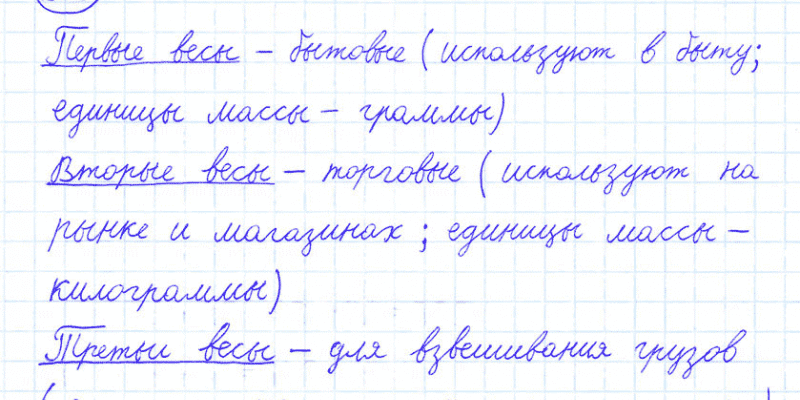 Первые весы – бытовые (используют в быту;
единицы массы – граммы)
Вторые весы – торговые (используют на
рынке и магазинах; единицы массы –
килограммы)
Третьи весы – для взвешивания грузов